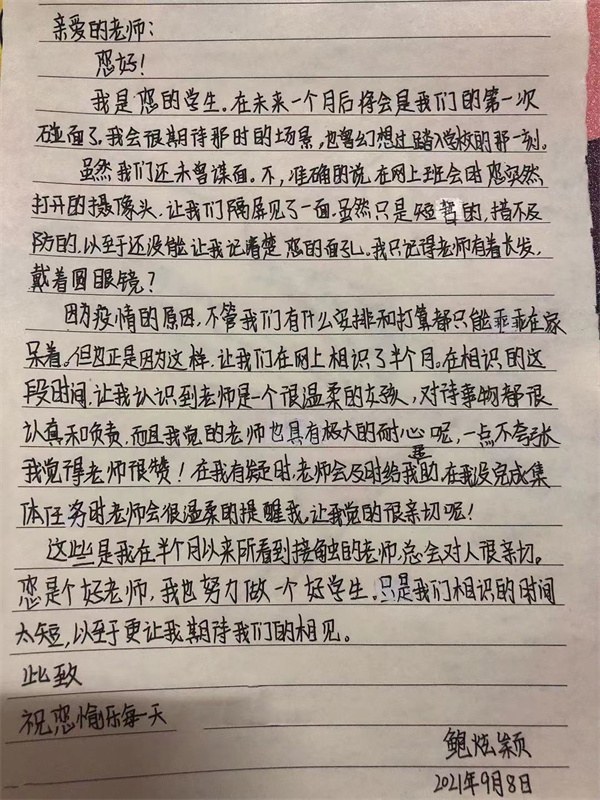 亲爱的老师：
您好！
我是您的学生。在未来一个月后将会是我们的第一次
碰面了。我会很期待那时的场景，也曾幻想过踏入学校的那一刻。
虽然我们还未曾谋面。不，准确的说，在网上班会时您突然
打开的摄像头，让我们隔屏见了一面。虽然只是短暂的，措不及
防的，以至于还没能让我记清楚您的面孔。我只记得老师有着长发，
戴着圆眼镜？
因为疫情的原因，不管我们有什么安排和打算都只能乖乖在家
呆着。但也正是因为这样，让我们在网上相识了半个月。在相识的这
段时间，让我认识到老师是一个很温柔的女孩，对待事物都很
认真和负责，而且我觉的老师也具有极大的耐心呢，一点不夸张
我觉得老师很赞！在我有疑时，老师会及时给我帮助，在我没完成集
体任务时老师会很温柔的提醒我，让我觉的很亲切呢！
这些是我在半个月以来所看到接触的老师，总会对人很亲切。
您是个好老师，我也努力做一个好学生。只是我们相识的时间
太短，以至于更让我期待我们的相见。
此致
祝您愉乐每一天
鲍炫颖
2021年9月8日